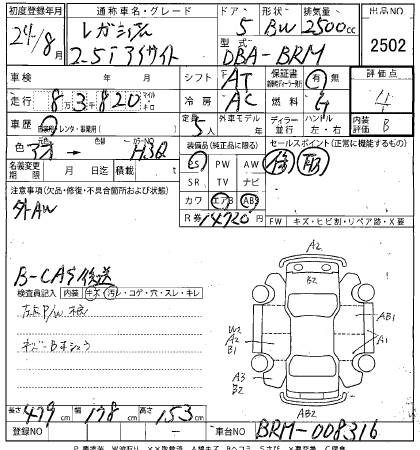 初度登録年月 通称車名・グレード ドア 形状 排気量 出品NO
24/8月 レガシィ 5 BW 2500cc
2.5i アイサイト 型式 DBA-BRM 2502
車検 年 月 日 シフト AT 保証書 有 無 評価点
走行 8万3千820 マイル キロ 冷房 AC 燃料 G 4
車歴 自家用・レンタ・事業用( ) 定員 5人 外車モデル 年 ディラー 並行 ハンドル 左・右 内装 B
色 色替 カラーNO H3Q 装備品(純正品に限る) セールスポイント(正常に機能するもの)
名義変更期限 月 日迄 積載 t PS PW AW
SR TV ナビ
注意事項(欠品・修復・不具合箇所および状態) カワ エアB ABS
外AW R券 14720円 FW キズ・ヒビ割・リペア跡・X要
B-CAS後送
検査員記入 内装 キズ・汚レ・コゲ・穴・スレ・キレ
A2
B2
W2
A2
B1
AB1
A1
A3
B2
AB2
長さ479cm 幅178cm 高さ153cm
登録NO 車台NO BRM-008316